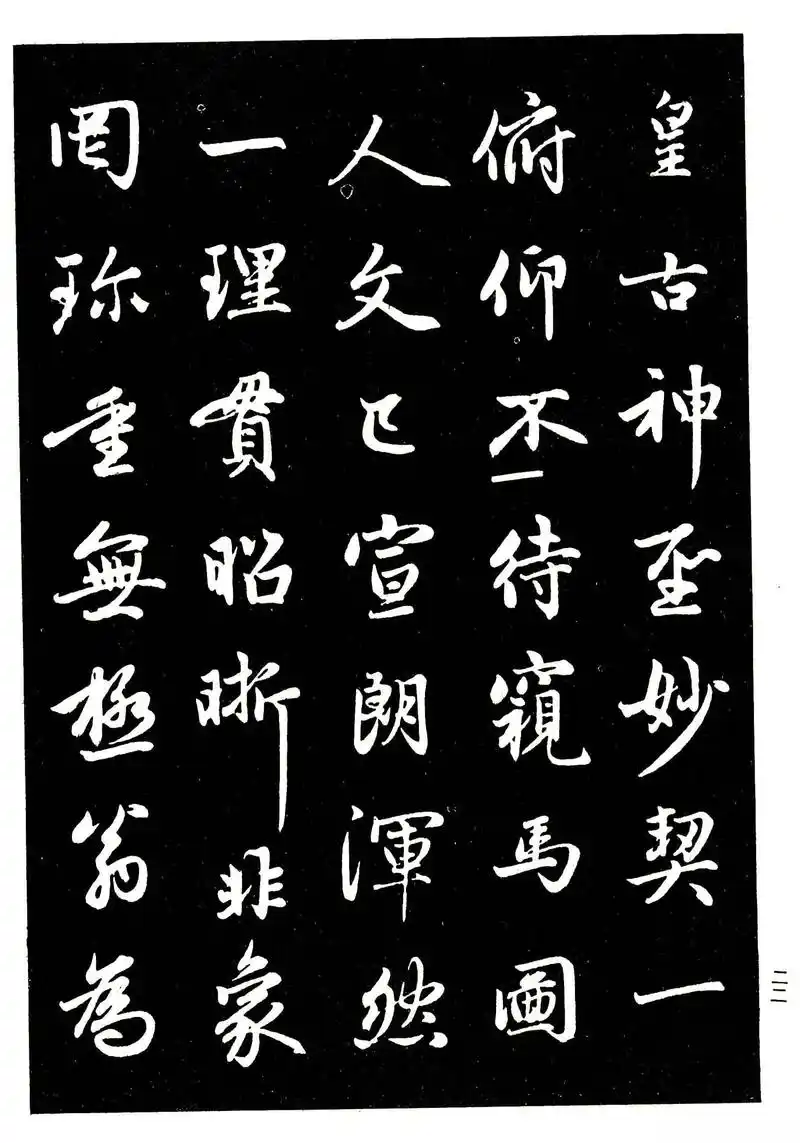 皇古神聖妙契一
俯仰不待窺馬圖
人文已宣朗渾然
一理貫昭晰非象
罔珍重無極翁為